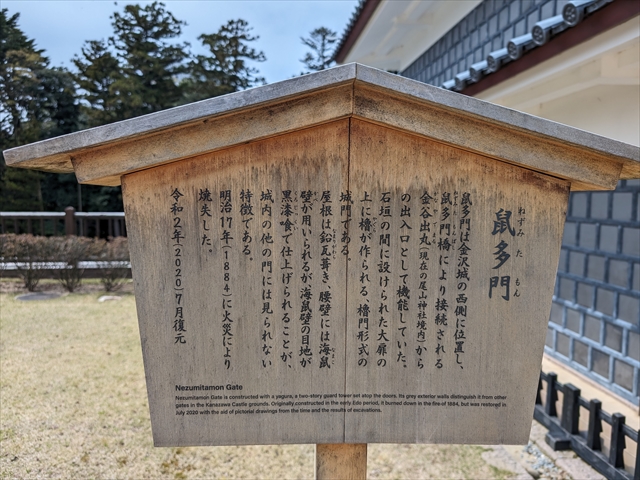 鼠多門
ねずみ た もん
鼠多門は金沢城の西側に位置し、
鼠多門橋により接続される
金谷出丸(現在の尾山神社境内)から
の出入口として機能していた。
石垣の間に設けられた大扉の
上に櫓が作られる、櫓門形式の
城門である。
屋根は鉛瓦葺き、腰壁には海鼠
壁が用いられるが、海鼠壁の目地が
黒漆喰で仕上げられることが、
城内の他の門には見られない
特徴である。
明治17年(1884)に火災により
焼失した。
令和2年(2020)7月復元
Nezumitamon Gate
Nezumitamon Gate is constructed with a yagura, a two-story guard tower set atop the doors. Its grey exterior walls distinguish it from other
gates in the Kanazawa Castle grounds. Originally constructed in the early Edo period, it burned down in the fire of 1884, but was restored in
July 2020 with the aid of pictorial drawings from the time and the results of excavations.